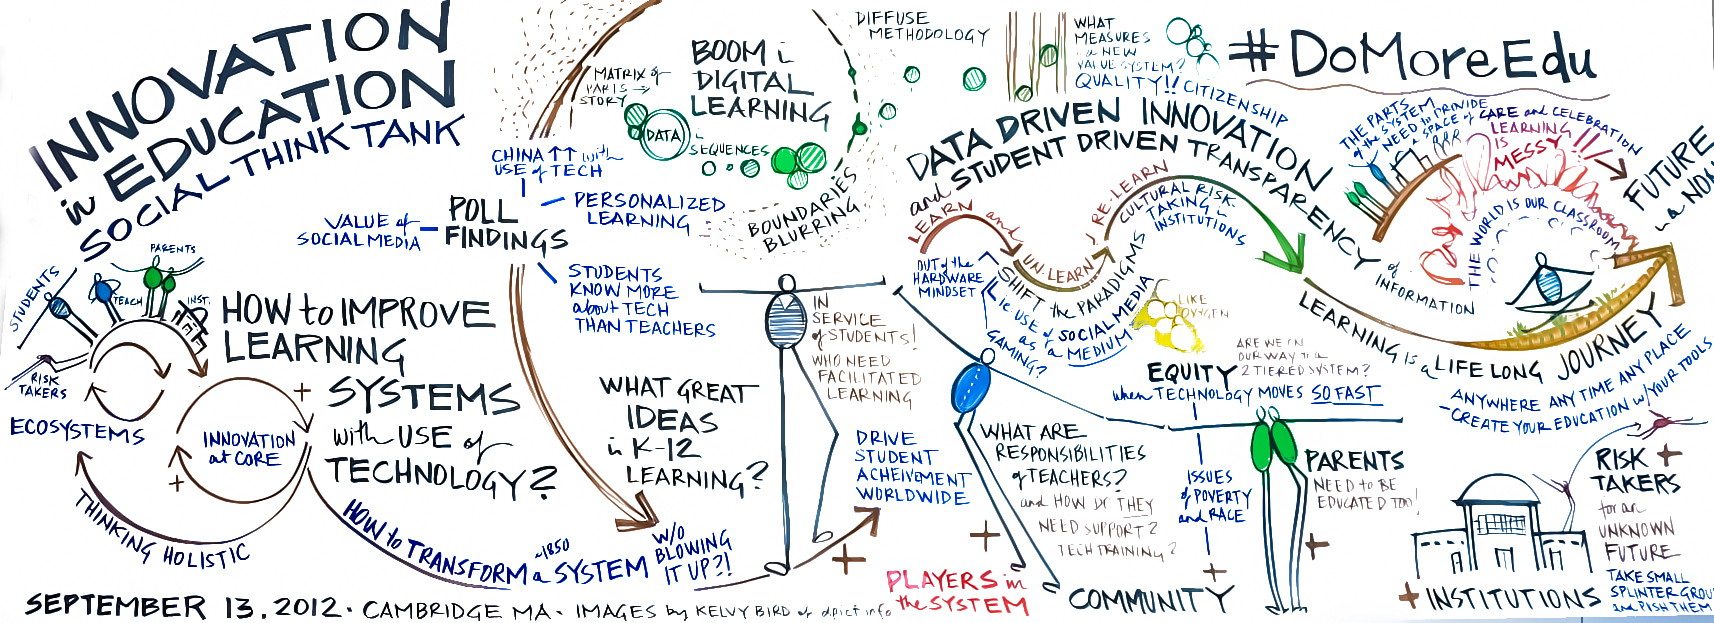 INNOVATION
in EDUCATION
SOCIAL THINK TANK
STUDENTS
TEACH
PARENTS
INST.
RISK
TAKERS
ECOSYSTEMS
INNOVATION
at CORE
+
+
THINKING HOLISTIC
HOW to IMPROVE
LEARNING
SYSTEMS
with USE of
TECHNOLOGY?
HOW to TRANSFORM a ~1850 SYSTEM
W/O
BLOWING
IT UP?!
VALUE of
SOCIAL MEDIA
POLL
FINDINGS
CHINA ↑↑ with
USE of TECH
PERSONALIZED
LEARNING
STUDENTS
KNOW MORE
about TECH
THAN TEACHERS
MATRIX of
PARTS →
STORY
BOOM in
DIGITAL
LEARNING
DATA
SEQUENCES
BOUNDARIES
BLURRING
DIFFUSE
METHODOLOGY
WHAT
MEASURES
in a NEW
VALUE SYSTEM?
QUALITY!! CITIZENSHIP
#DoMoreEdu
WHAT GREAT
IDEAS
in K-12
LEARNING?
IN
SERVICE
of STUDENTS!
WHO NEED
FACILITATED
LEARNING
DRIVE
STUDENT
ACHEIVEMENT
WORLDWIDE
+
DATA DRIVEN INNOVATION
and STUDENT DRIVEN TRANSPARENCY
of
INFORMATION
LEARN and
UN-LEARN
RE-LEARN
CULTURAL RISK
TAKING in
INSTITUTIONS
OUT of the
HARDWARE
MINDSET
SHIFT the PARADIGMS
ie USE of SOCIAL MEDIA
as a MEDIUM
GAMING?
LIKE
OXYGEN
THE PARTS
of the SYSTEM
NEED to PROVIDE
a SPACE of
CARE and CELEBRATION
LEARNING
IS
MESSY!!!
THE WORLD IS OUR CLASSROOM
FUTURE
LEARNING is a LIFE LONG JOURNEY
ANYWHERE ANY TIME ANY PLACE
–CREATE YOUR EDUCATION w/YOUR TOOLS
ARE WE ON
OUR WAY to a
2 TIERED SYSTEM?
EQUITY
when TECHNOLOGY MOVES SO FAST
ISSUES
of POVERTY
and RACE
+
WHAT ARE
RESPONSIBILITIES
of TEACHERS?
and HOW DO THEY
NEED SUPPORT?
TECH TRAINING?
+
PLAYERS in
the SYSTEM
COMMUNITY
PARENTS
NEED to BE
EDUCATED TOO!
+
+ INSTITUTIONS
RISK +
TAKERS
for an
UNKNOWN
FUTURE
TAKE SMALL
SPLINTER
SEPTEMBER 13.2012 · CAMBRIDGE MA · IMAGES by KELVY BIRD of dpict.info